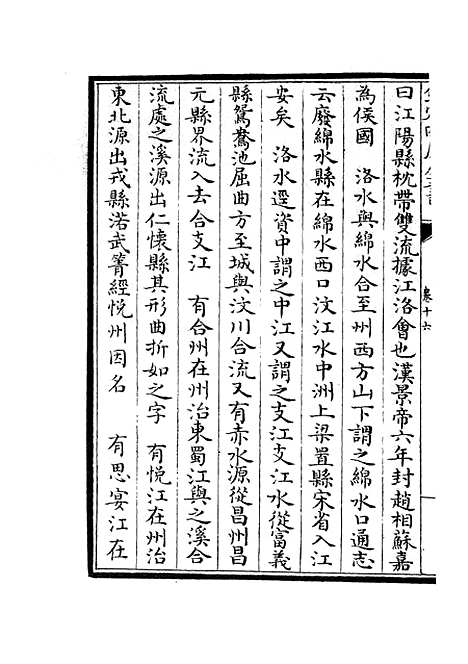 欽定四庫全書
卷十六
曰江陽縣枕帶雙流據江洛會也漢景帝六年封趙相蘇嘉
為侯國　洛水與綿水合至州西方山下謂之綿水口通志
云廢綿水縣在綿水西口汶江水中洲上梁置縣宋省入江
安矣　洛水逕資中謂之中江又謂之支江支江水從富義
縣鴛鴦池屈曲方至城與汶川合流又有赤水源從昌州昌
元縣界流入去合支江　有合州在州治東蜀江與之溪合
流處之溪源出仁懷縣其形曲折如之字　有悅江在州治
東北源出戎縣渃武箐經悅州因名　有思宴江在